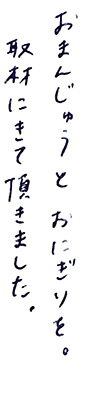 おまんじゅうとおにぎりを。
取材にきて頂きました.